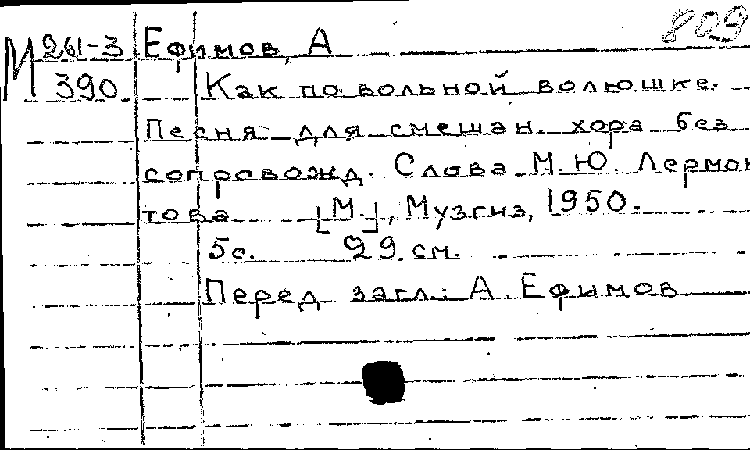 809
М 261-3 Ефимов, А
390 Как по вольной волюшке.
Песня для смешан. хора без
сопровожд. Слова М.Ю. Лермон
това [М.], Музгиз, 1950.
5с. 29 см.
Перед загл.: А. Ефимов